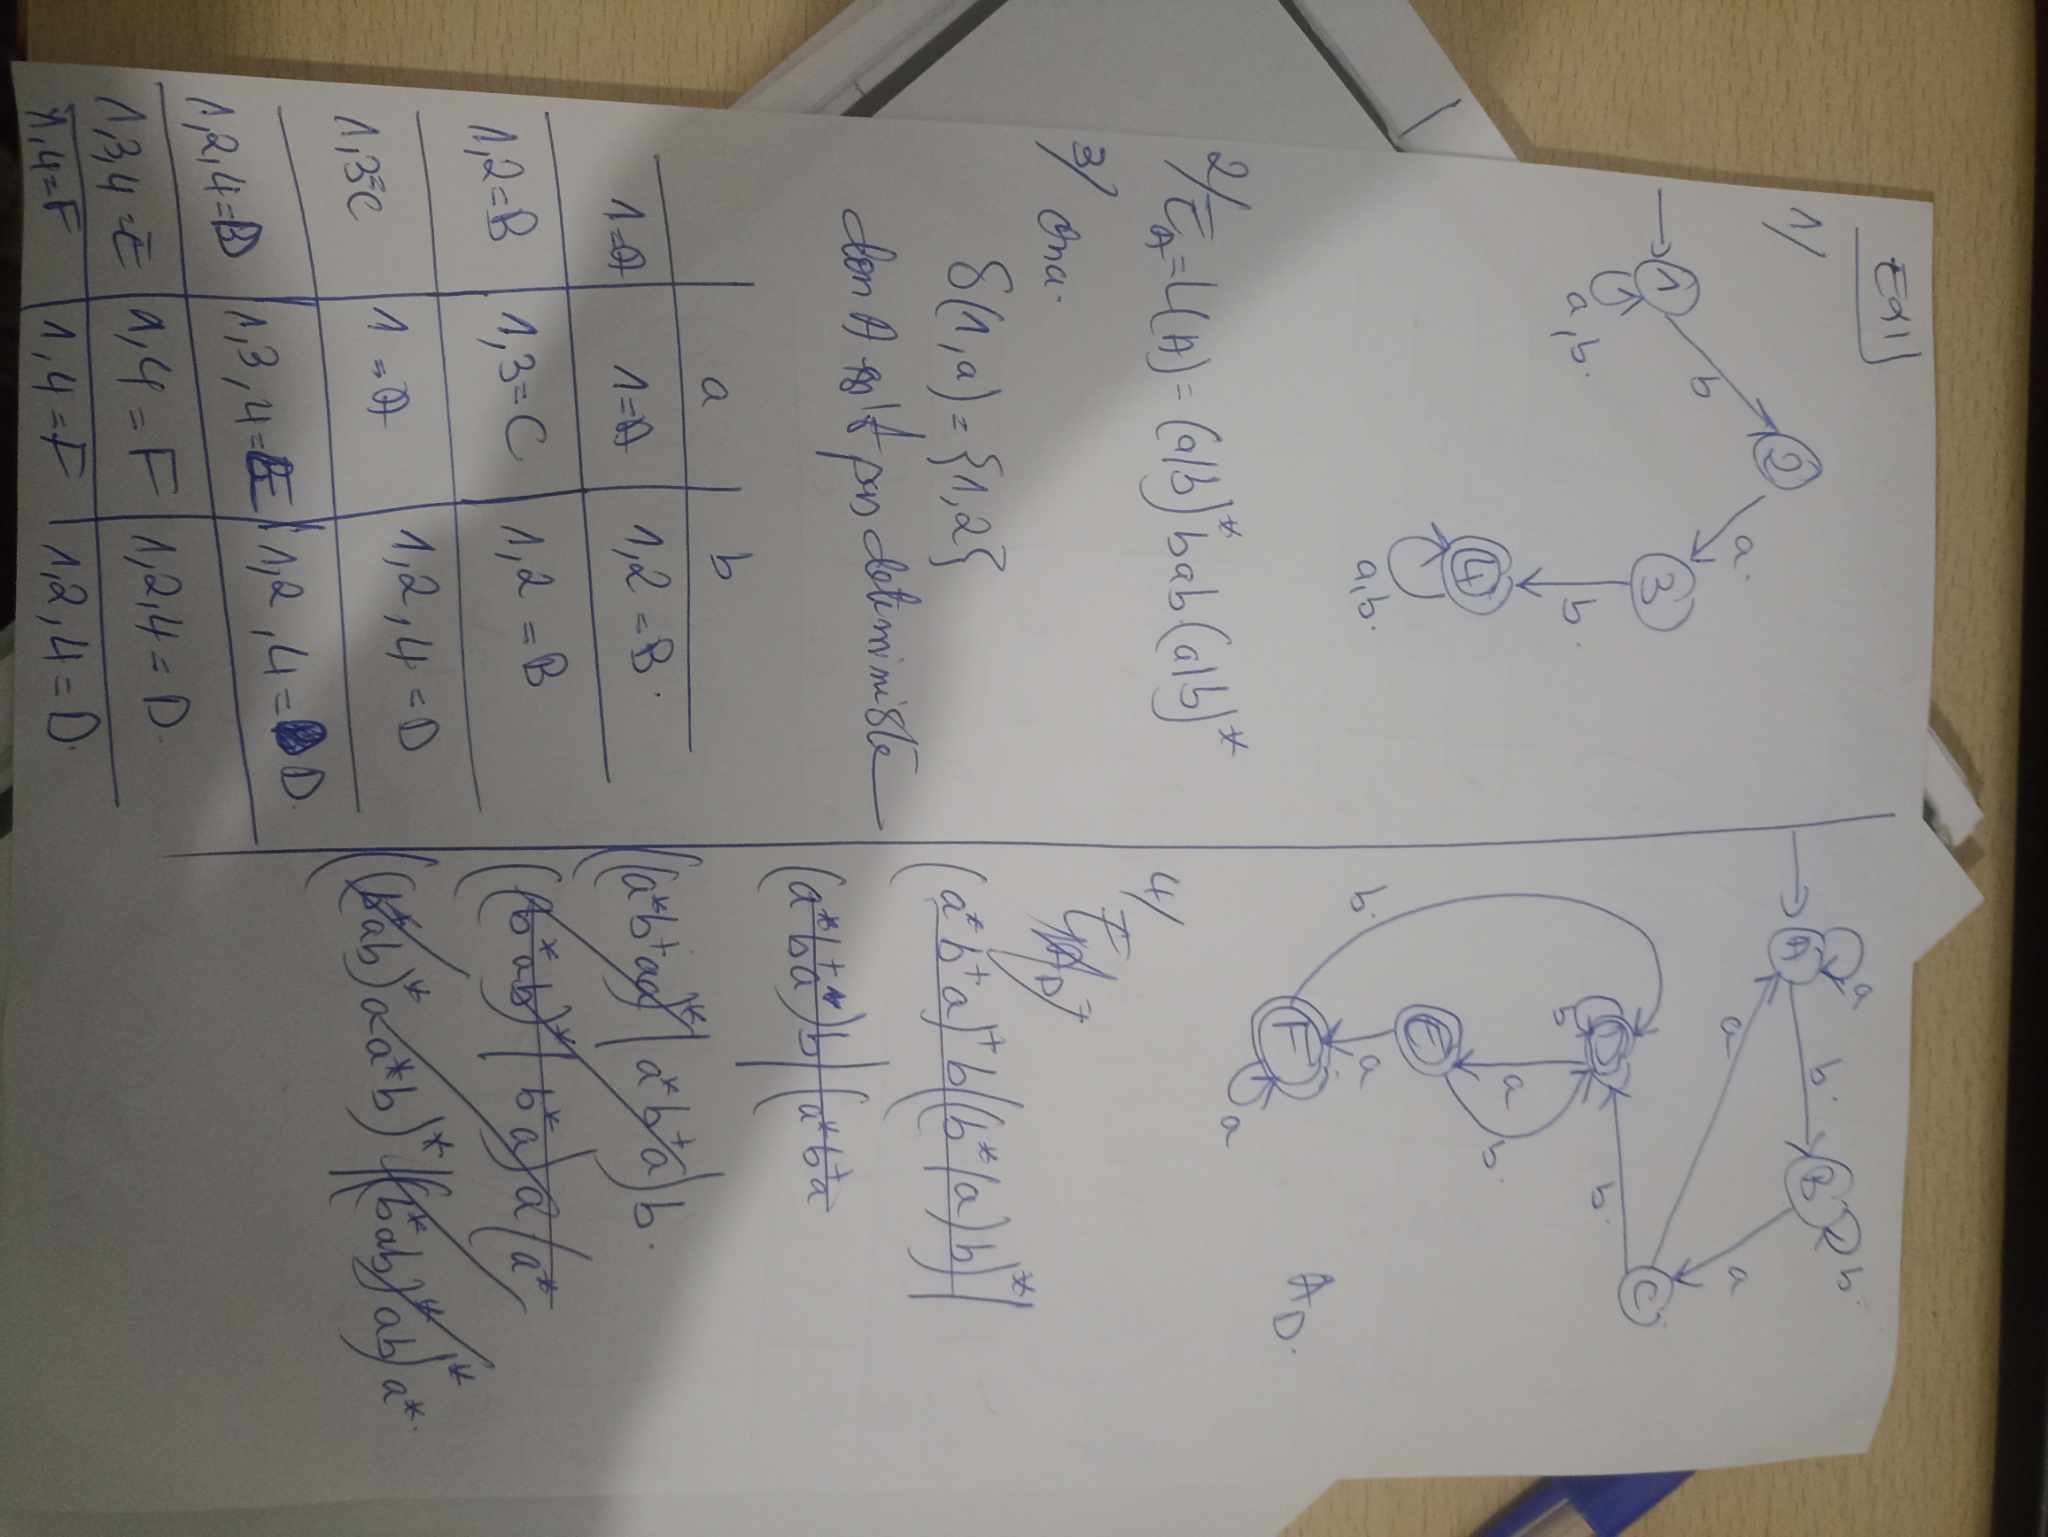 Ex1
1/
1
2
3
4
b
a.
b.
a,b.
a,b.
2/ E_A = L(A) = (a|b)* bab (a|b)*
3/ Ona.
δ(1,a) = {1,2}
don A pas
a b
1=A 1=A 1,2=B.
1,2=B 1,3=C 1,2=B
1,3=C 1=A 1,2,4=D
1,2,4=D 1,3,4=E 1,2,4=D.
1,3,4=E 1,4=F 1,2,4=D.
1,4=F 1,4=F 1,2,4=D.
A
B
C
D
E
F
a
b.
b.
a
a
b.
b
a
b.
a
b.
a
A_D.
4/
(a* b⁺ a)⁺ b ((b*|a) b)* |
(a* b⁺ a) b | (a* b⁺ a
((a* b⁺ aa)* | a* b⁺ a) b.
((b* ab)* | b* a) a (a*
((b* ab)* a a* b)* | ((b* ab)* ab)* a*.